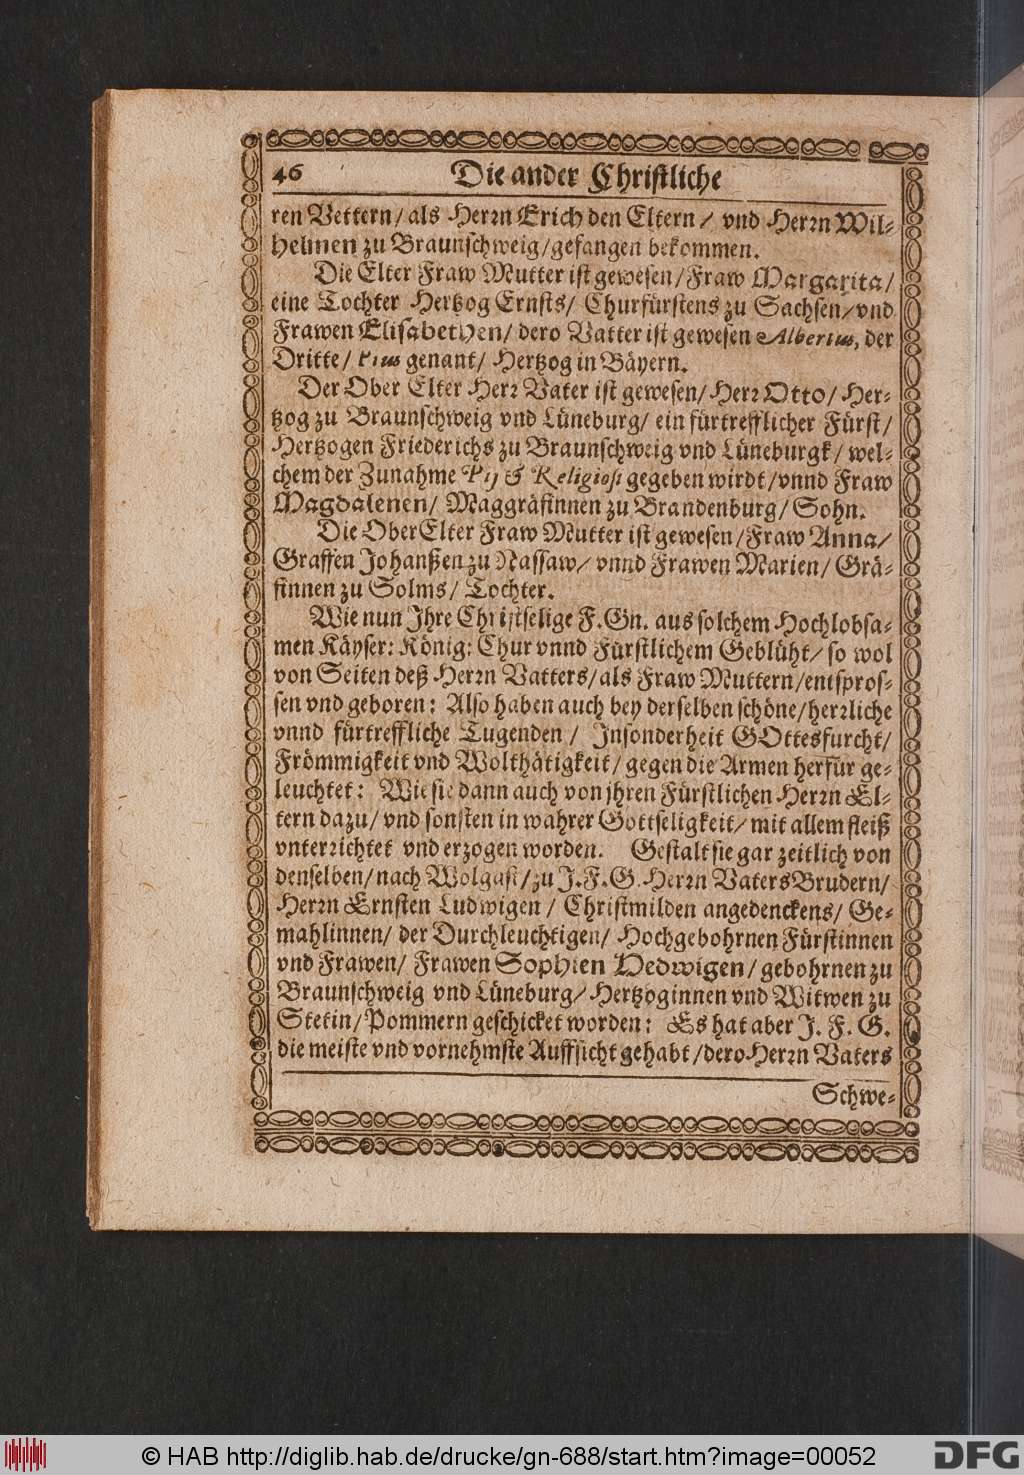 46 Die ander Christliche
ren Vettern/ als Herrn Erich den Eltern/ vnd Herrn Wil-
helmen zu Braunschweig/ gefangen bekommen.
Die Elter Fraw Mutter ist gewesen/ Fraw Margarita/
eine Tochter Hertzog Ernsts/ Churfürstens zu Sachsen/ vnd
Frawen Elisabethen/ dero Vatter ist gewesen Albertus, der
Dritte/ Pius genant/ Hertzog in Bäyern.
Der Ober Elter Herr Vater ist gewesen/ Herr Otto/ Her-
tzog zu Braunschweig vnd Lüneburg/ ein fürtrefflicher Fürst/
Hertzogen Friederichs zu Braunschweig vnd Lüneburgk/ wel-
chem der Zunahme Pij & Religiosi gegeben wirdt/ vnnd Fraw
Magdalenen/ Maggräfinnen zu Brandenburg/ Sohn.
Die OberElter Fraw Mutter ist gewesen/ Fraw Anna/
Graffen Johanßen zu Nassaw/ vnnd Frawen Marien/ Grä-
finnen zu Solms/ Tochter.
Wie nun Ihre Christselige F. Gn. aus solchem Hochlobsa-
men Käyser: König: Chur vnnd Fürstlichem Geblüht/ so wol
von Seiten deß Herrn Vatters/ als Fraw Muttern/ entspros-
sen vnd geboren: Also haben auch bey derselben schöne/ herrliche
vnnd fürtreffliche Tugenden/ Insonderheit GOttesfurcht/
Frömmigkeit vnd Wolthätigkeit/ gegen die Armen herfür ge-
leuchtet: Wie sie dann auch von jhren Fürstlichen Herrn El-
tern dazu/ vnd sonsten in wahrer Gottseligkeit/ mit allem fleiß
vnterrichtet vnd erzogen worden. Gestalt sie gar zeitlich von
denselben/ nach Wolgast/ zu J. F. G. Herrn Vaters Brudern/
Herrn Ernsten Ludwigen/ Christmilden angedenckens/ Ge-
mahlinnen/ der Durchleuchtigen/ Hochgebohrnen Fürstinnen
vnd Frawen/ Frawen Sophien Hedwigen/ gebohrnen zu
Braunschweig vnd Lüneburg/ Hertzoginnen vnd Witwen zu
Stetin/ Pommern geschicket worden: Es hat aber J. F. G.
die meiste vnd vornehmste Auffsicht gehabt/ dero Herrn Vaters
Schwe-
© HAB http://diglib.hab.de/drucke/gn-688/start.htm?image=00052
DFG